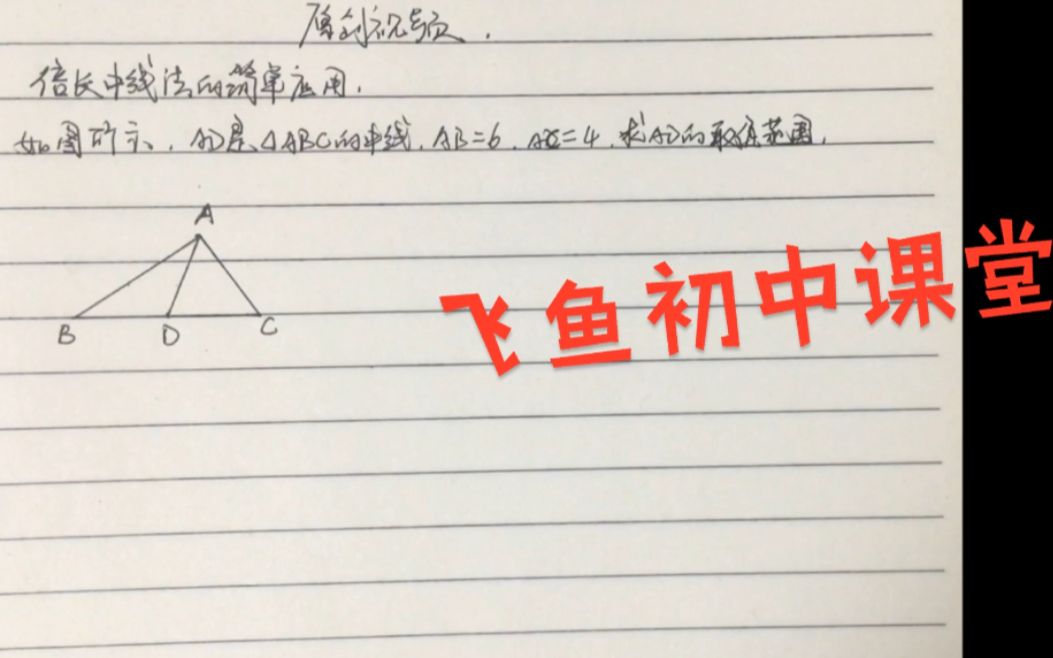 原创视频.
倍长中线法的简单应用.
如图所示.AD是△ABC的中线.AB=6.AC=4.求AD的取值范围.
A
B D C
飞鱼初中课堂